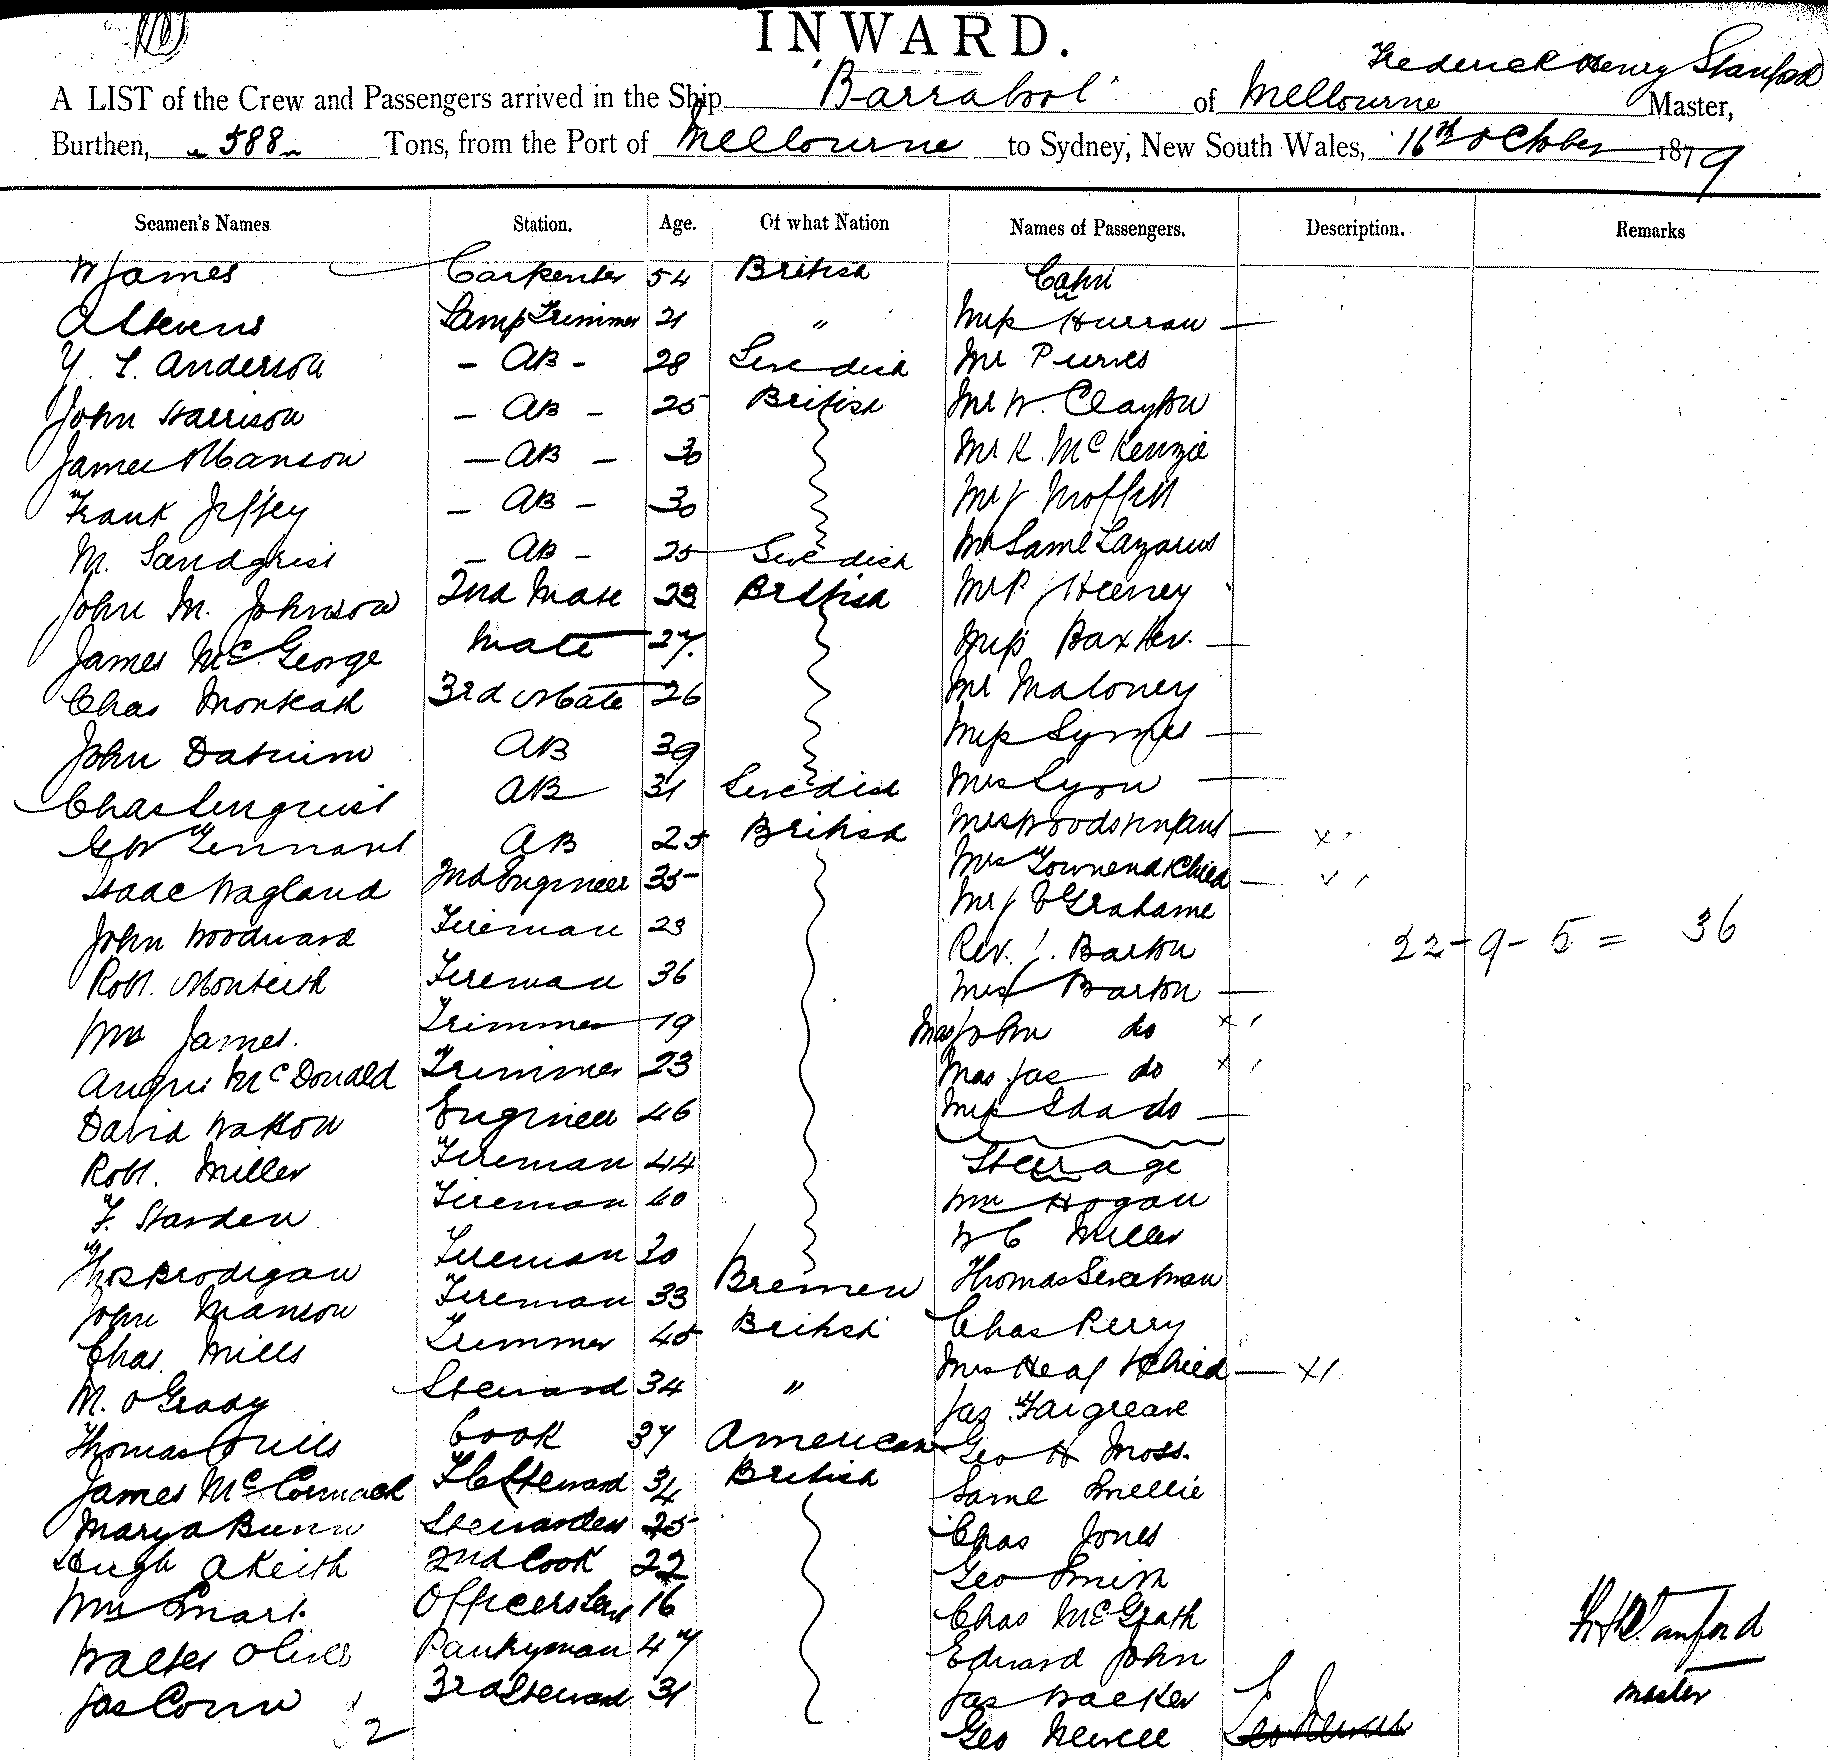 INWARD.
Frederick Henry Stanford
A LIST of the Crew and Passengers arrived in the Ship "Barrabool" of Melbourne Master,
Burthen, 588 Tons, from the Port of Melbourne to Sydney, New South Wales, 16th October 1879
Seamen's Names Station. Age. Of what Nation Names of Passengers. Description. Remarks
W James Carpenter 54 British Cabin
A Stevens Lamp Trimmer 21 " Miss Hurran —
Y. L. Anderson - AB - 28 Swedish Mr Purves
John Harrison - AB - 25 British Mr W. Clayton
James Manson - AB - 30 Mr K. McKenzie
Frank Jeffrey - AB - 30 Mr J Moffitt
M. Sandqrist - AB - 25 Swedish Mr Saml Lazarus
John M. Johnson 2nd Mate 23 British Mr P Heeney
James McGeorge Mate 27. Miss Baxter. —
Chas Monkash 3rd Mate 26 Mr Maloney
John Datrium AB 39 Miss Symes —
Chas Lenquist AB 31 Swedish Mrs Lyon —
G W Tennant AB 25 British Mrs Woods & Infant — x
Isaac Wagland 2nd Engineer 35 Mrs Townend & Child —
John Woodward Fireman 23 Mr J E Grahame
Robt. Monteith Fireman 36 Rev. J. Barton 22-9-5 = 36
Wm James. Trimmer 19 Mrs Barton —
Angus McDonald Trimmer 23 Mas John do x
David Watson Engineer 46 Mas Jas do x
Robt. Miller Fireman 44 Miss Ida do —
F. Harden Fireman 40 Steerage
Thos Brodigan Fireman 30 Wm Hogan
John Manson Fireman 33 Bremen W C Miller
Chas. Mills Trimmer 45 British Thomas Sweetman
M. O'Grady Steward 34 " Chas Perry
Thomas Cruels Cook 37 American Mrs Heaf & Child — x1
James McCormack F C Steward 34 British Jas. Fargreave
Mary A Bunn Stewardess 25 Geo H Moss.
Hugh A Keith 2nd Cook 22 Saml Smellie
Wm Smart. Officers Servt 16 Chas Jones
Walter Oliver Pantryman 47 Geo Smith
Jas Conn 3rd Steward 31 Chas McGrath
Edward John
Jas Walker
Geo Newell Geo Newell
32
F. H. Stanford
Master